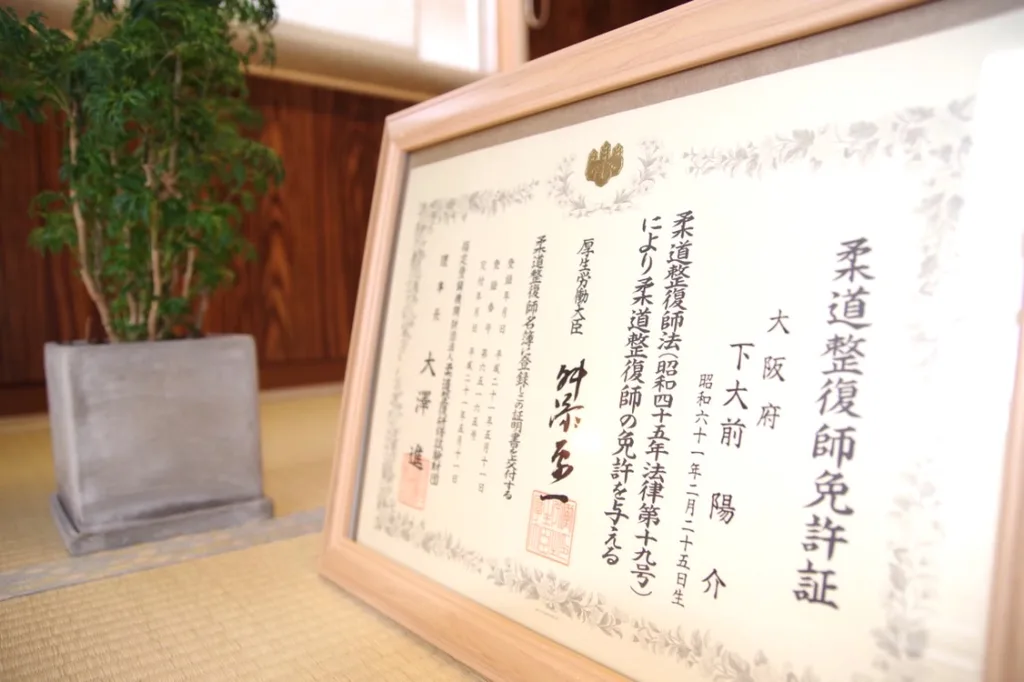 柔道整復師免許証
大阪府
下大前 陽介
昭和六十一年二月二十五日生
柔道整復師法(昭和四十五年法律第十九号)
により柔道整復師の免許を与える
厚生労働大臣 舛添要一
柔道整復師名簿に登録しこの証明書を交付する
登録年月日 平成二十一年五月十一日
登録番号 第六五一六五号
交付年月日 平成二十一年五月十一日
指定登録機関 財団法人柔道整復研修試験財団
理事長 大澤 進